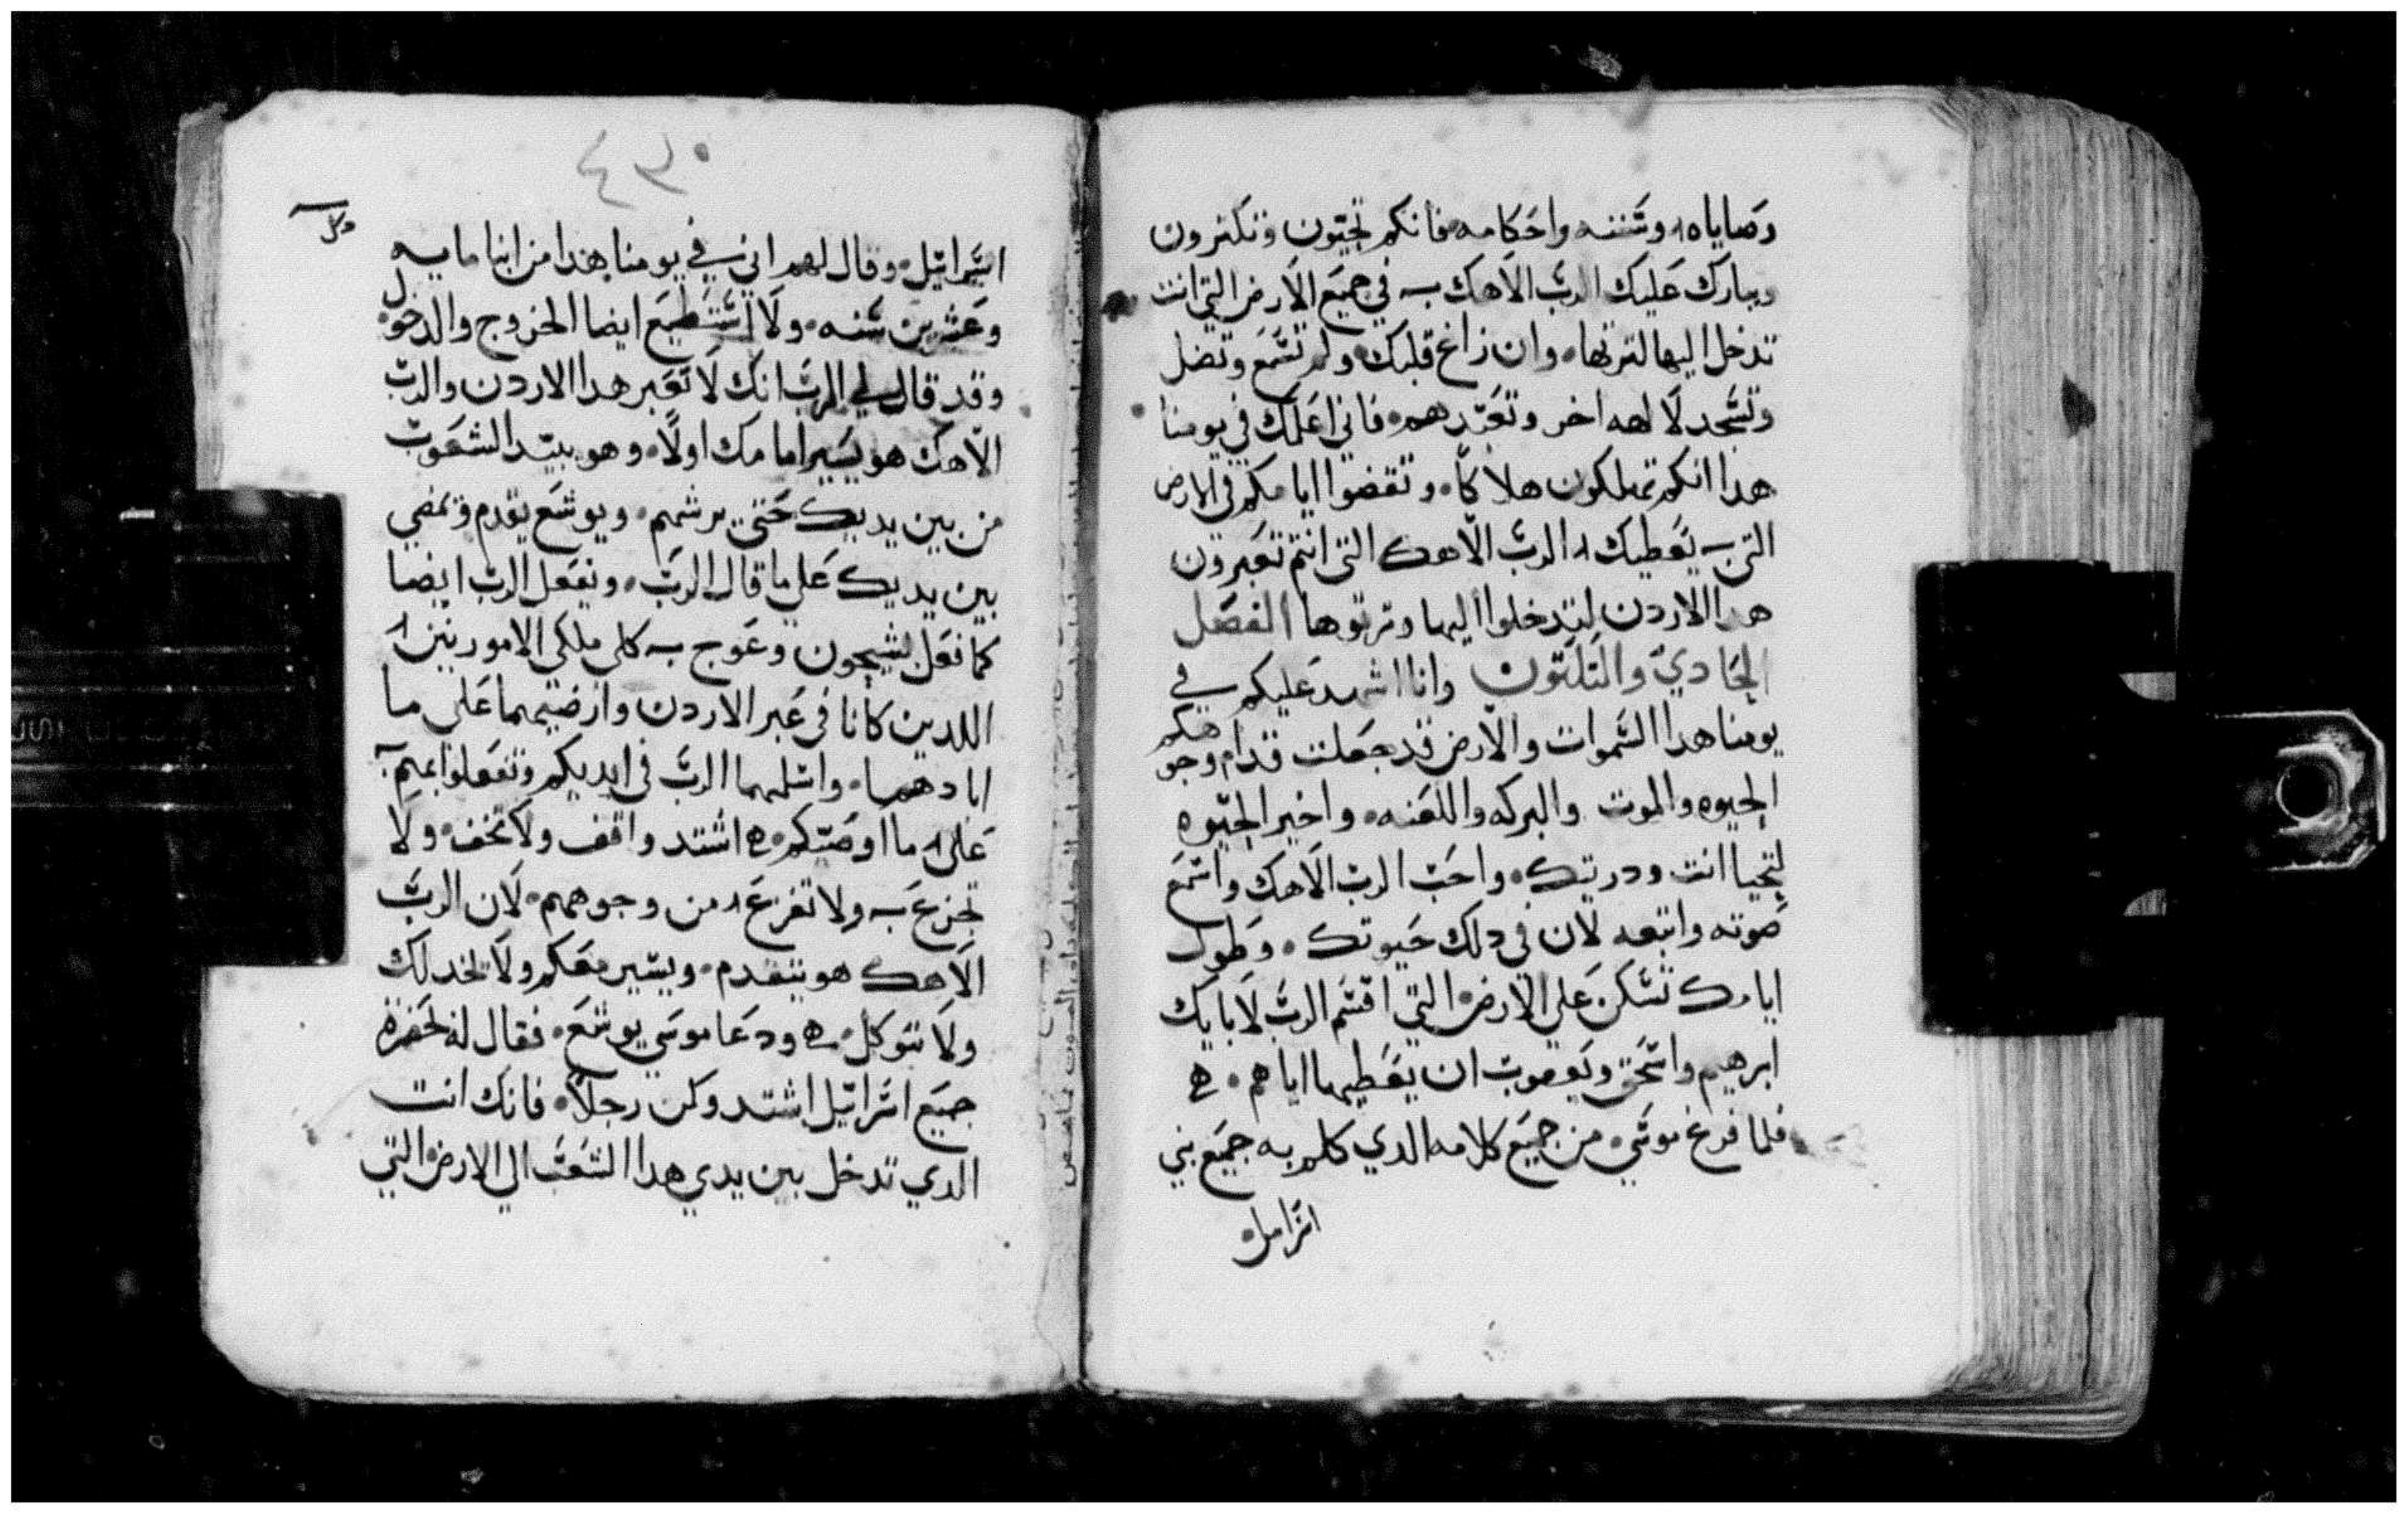 وصاياه وسننه واحكامه فانكم تحيون وتكثرون
ويبارك عليك الرب الاهك في جميع الارض التي انت
تدخل اليها لترتها وان زاغ قلبك ولم تسمع وتضل
وتسجد لالهه اخر وتعبدهم فاني اعلمك في يومنا
هدا انكم تهلكون هلاكا وتقضوا ايامكم في الارض
التي يعطيك الرب الاهك التي انتم تعبرون
هدا الاردن لتدخلوا اليها وترتوها الفصل
الحادي والتلتون وانا اشهد عليكم في
يومنا هدا السموات والارض قد جعلت قدام وجوهكم
الحيوه والموت والبركه واللعنه واخير الحيوه
لتحيا انت ودريتك واحب الرب الاهك واسمع
صوته واتبعه لان في دلك حيوتك وطول
ايامك تسكن علي الارض التي اقسم الرب لابايك
ابرهيم واسحق ويعقوب ان يعطيها اياهم
فلما فرغ موسي من جميع كلامه الدي كلم به جميع بني
اسرايل
٤٣٠
اسراييل وقال لهم اني في يومنا هدا من ابنا مايه
وعشرين سنه ولا استطيع ايضا الخروج والدخول
وقد قال لي الرب انك لا تعبر هدا الاردن والرب
الاهك هو يسير امامك اولا وهو يبيد الشعوب
من بين يديك حتي يرثهم ويوشع يقدم ويمضي
بين يديك علي ما قال الرب ويفعل الرب ايضا
كما فعل بسيحون وعوج ملكي الاموريين
اللدين كانا في عبر الاردن وارضيهما علي ما
ابادهما واسلمهما الرب في ايديكم وتفعلوا بهم
علي ما اوصيتكم اشتد واقف ولا تخف ولا
تجزع ولا تفزع من وجوههم لان الرب
الاهك هو يتقدم ويسير معكم ولا يخدلك
ولا يتوكل ودعا موسي يوشع فقال له بحضره
جميع اسراييل اشتد وكن رجلا فانك انت
الدي تدخل بين يدي هدا الشعب الي الارض التي